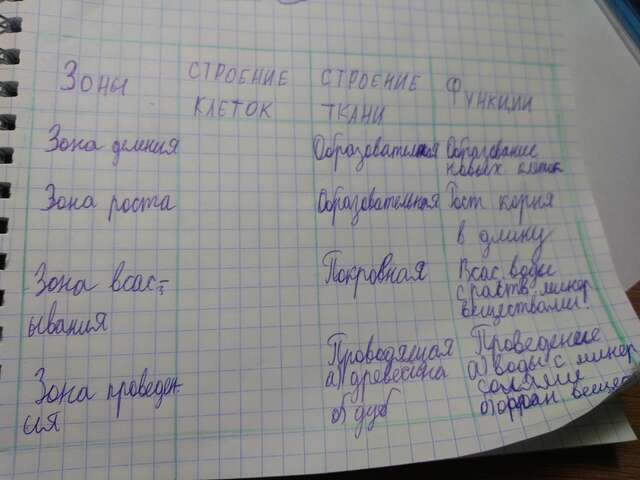 Зоны СТРОЕНИЕ КЛЕТОК СТРОЕНИЕ ТКАНИ ФУНКЦИИ
Зона деления Образовательная Образование
новых клеток
Зона роста Образовательная Рост корня
в длину
Зона всас=
ывания
Покровная Всас. воды
с раств. минер
веществами.
Зона проведен-
ия
Проводящая
а) древесина
б) дуб
Проведение
а) воды с минер
солями
б) орган вещес